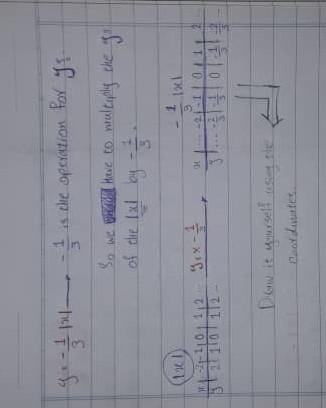 y = -1/3 |x| → -1/3 is the operation for ys.
So we have to multiply the ys
of the |x| by -1/3.
|x|
x | -2 | -1 | 0 | 1 | 2 ...
y | 2 | 1 | 0 | 1 | 2 ...
y x -1/3 →
-1/3 |x|
x | ... -2 | -1 | 0 | 1 | 2 ...
y | ... -2/3 | -1/3 | 0 | -1/3 | -2/3
Draw it yourself using the
coordinates.